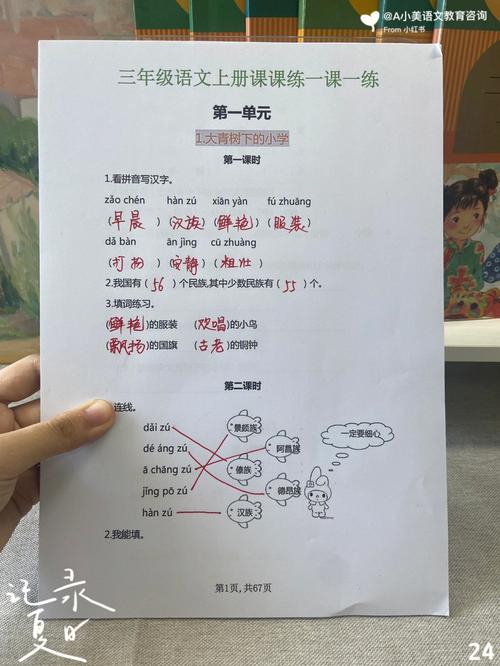 @A小美语文教育咨询
From 小红书
三年级语文上册课课练一课一练
第一单元
1.大青树下的小学
第一课时
1.看拼音写汉字。
zǎo chén hàn zú xiān yàn fú zhuāng
(早晨)(汉族)(鲜艳)(服装)
dǎ bàn ān jìng cū zhuàng
(打扮)(安静)(粗壮)
2.我国有(56)个民族,其中少数民族有(55)个。
3.填词练习。
(鲜艳)的服装 (欢唱)的小鸟
(飘扬)的国旗 (古老)的铜钟
第二课时
连线。
dǎi zú 景颇族
dé áng zú 阿昌族
ā chāng zú 傣族
jǐng pō zú 德昂族
hàn zú 汉族
一定要细心
2.我能填。
第1页,共67页
记录
夏日
24